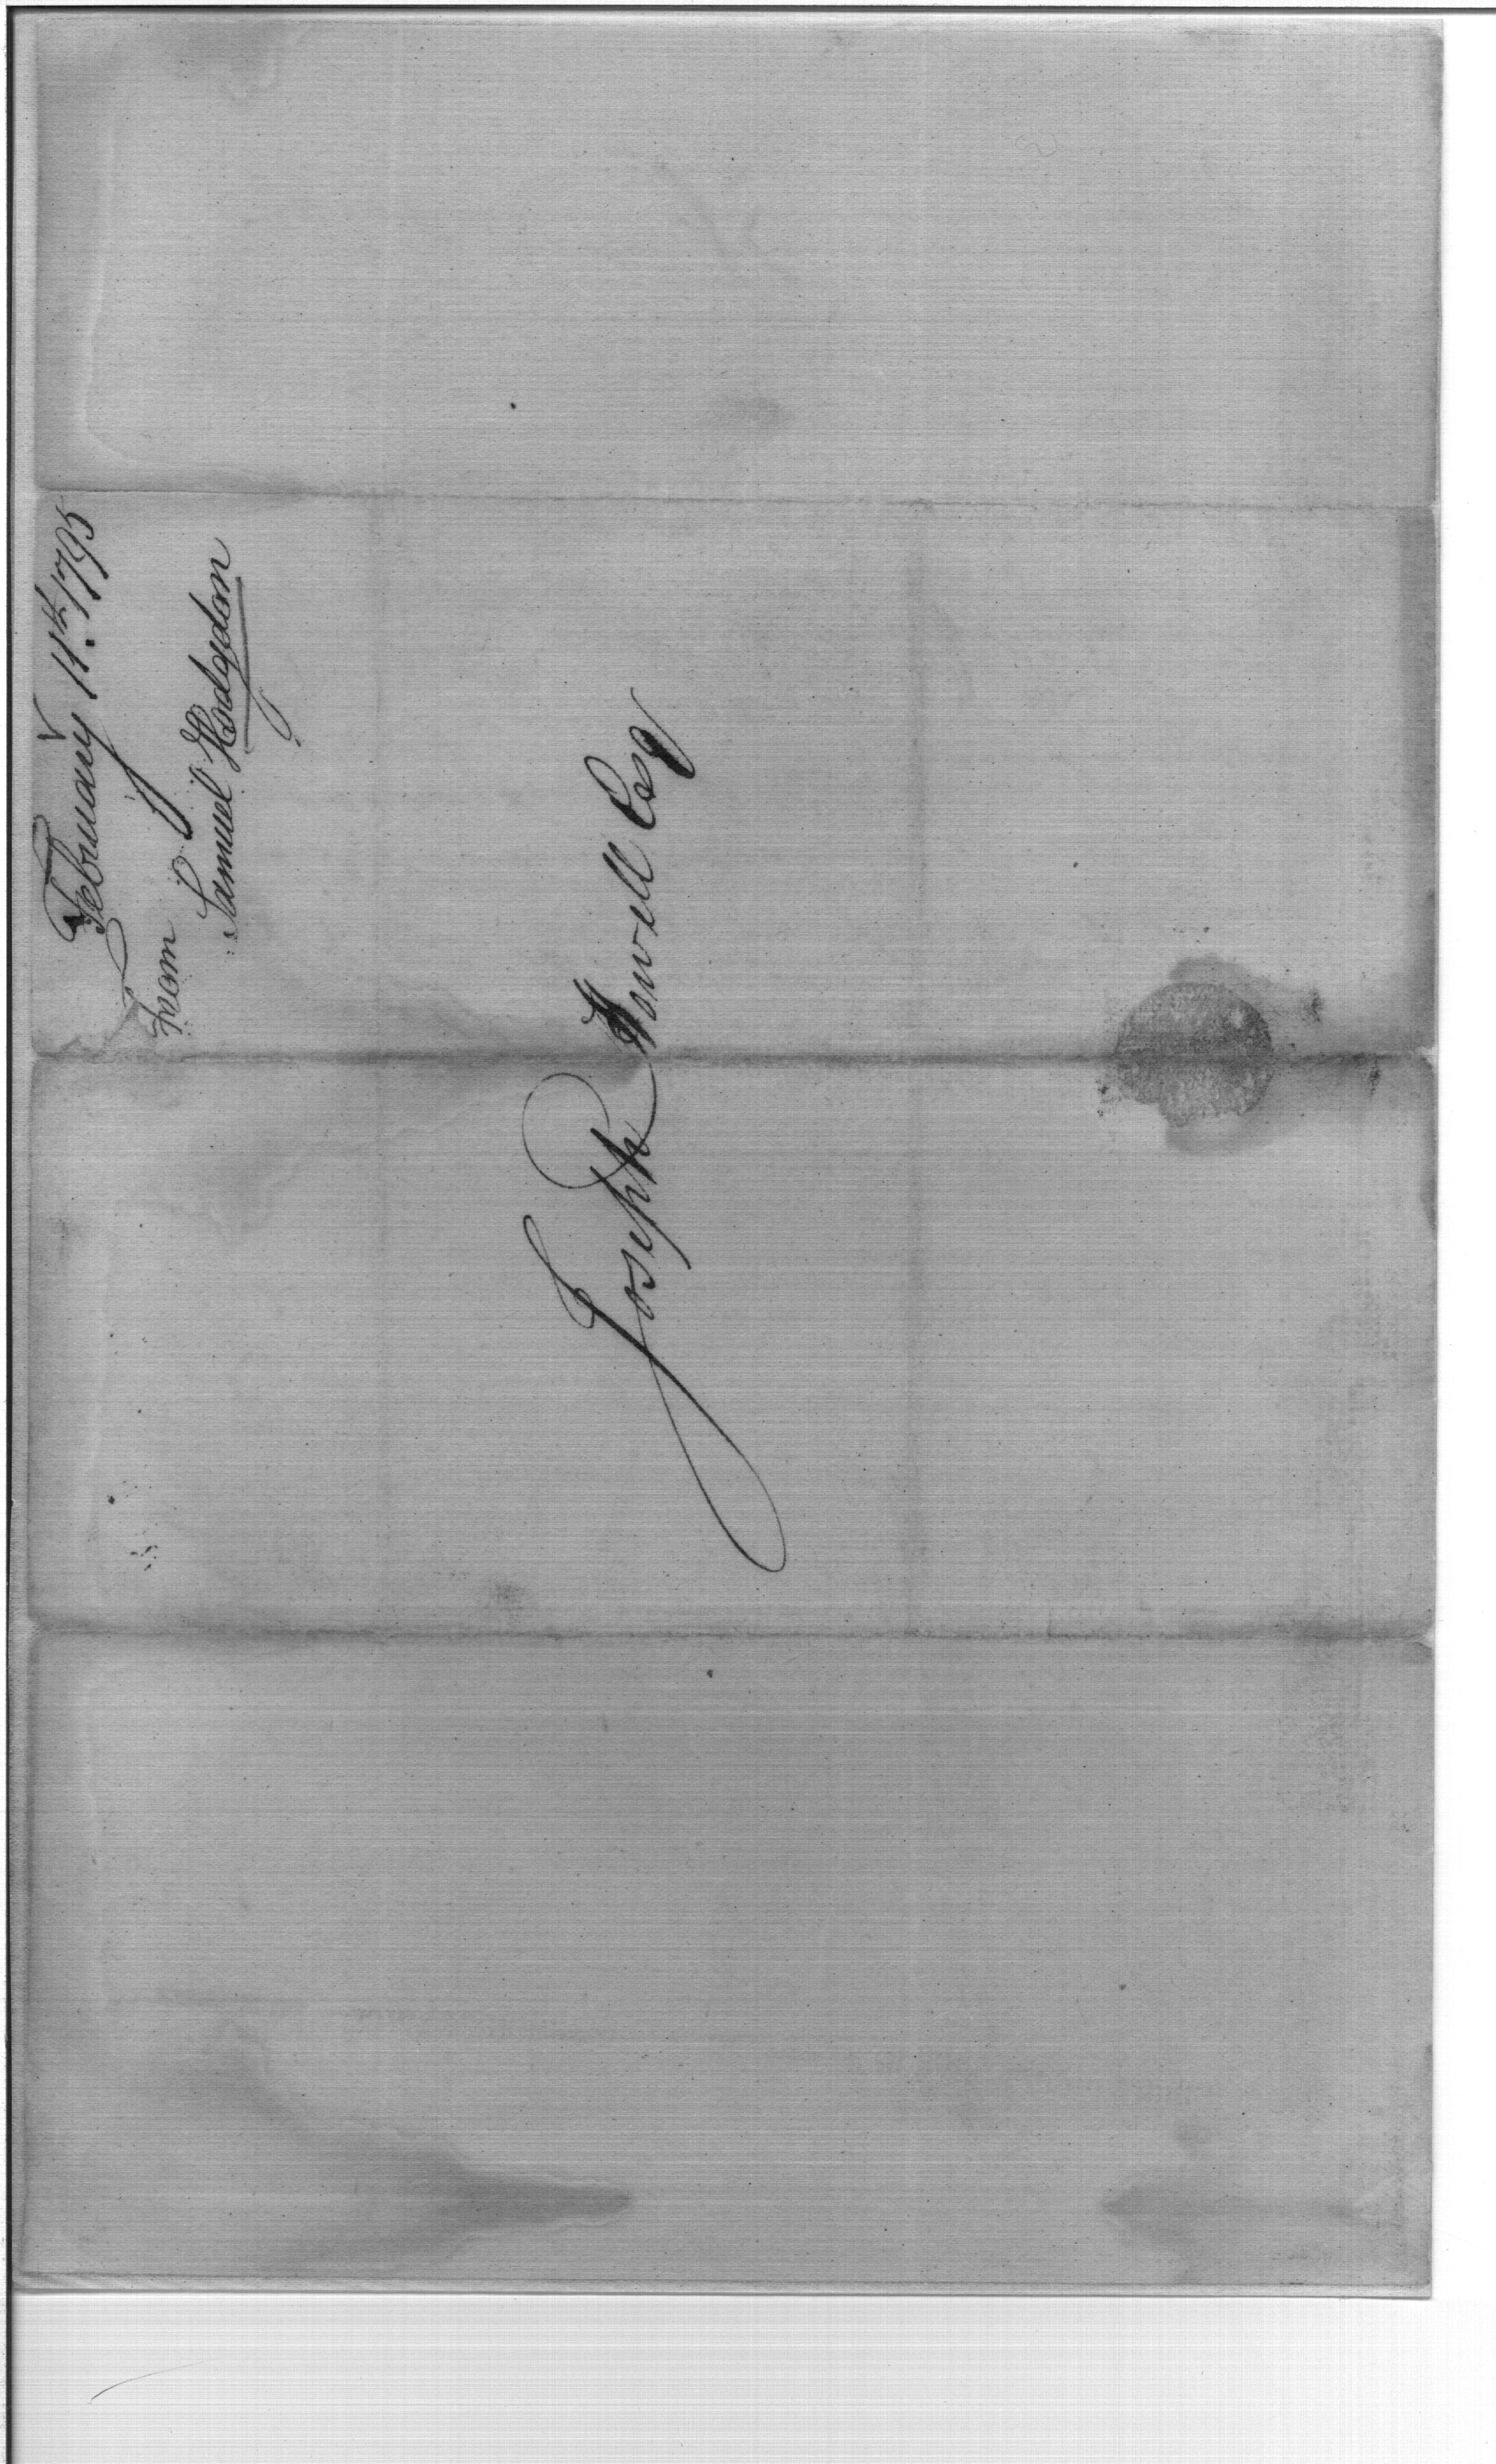 February 11th. 1795
From
Samuel Hodgdon
Joseph Howell Esq